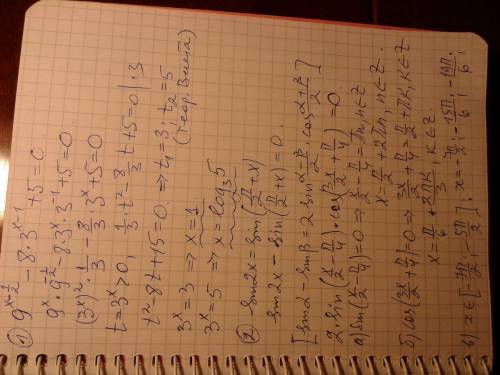 ① 9^(x-1/2) - 8·3^(x-1) + 5 = 0
9^x · 9^(-1/2) - 8·3^x·3^(-1) + 5 = 0
(3^x)²·1/3 - 8/3·3^x + 5 = 0
t = 3^x > 0, 1/3·t² - 8/3 t + 5 = 0 |·3
t² - 8t + 15 = 0 ⇒ t₁ = 3; t₂ = 5
(теор. Виета)
3^x = 3 ⇒ x = 1
3^x = 5 ⇒ x = log₃5
② sin2x = sin(π/2 + x)
sin2x - sin(π/2 + x) = 0
[sinα - sinβ = 2 sin (α-β)/2 · cos (α+β)/2]
2·sin(x/2 - π/4)·cos(3x/2 + π/4) = 0
а) sin(x/2 - π/4) = 0 ⇒ x/2 - π/4 = πn, n∈Z
x = π/2 + 2πn, n∈Z.
б) cos(3x/2 + π/4) = 0 ⇒ 3x/2 + π/4 = π/2 + πk, k∈Z
x = π/6 + 2πk/3, k∈Z.
в) x∈[-7π/2; -5π/2]: x = -7π/2; -15π/6; -19π/6;